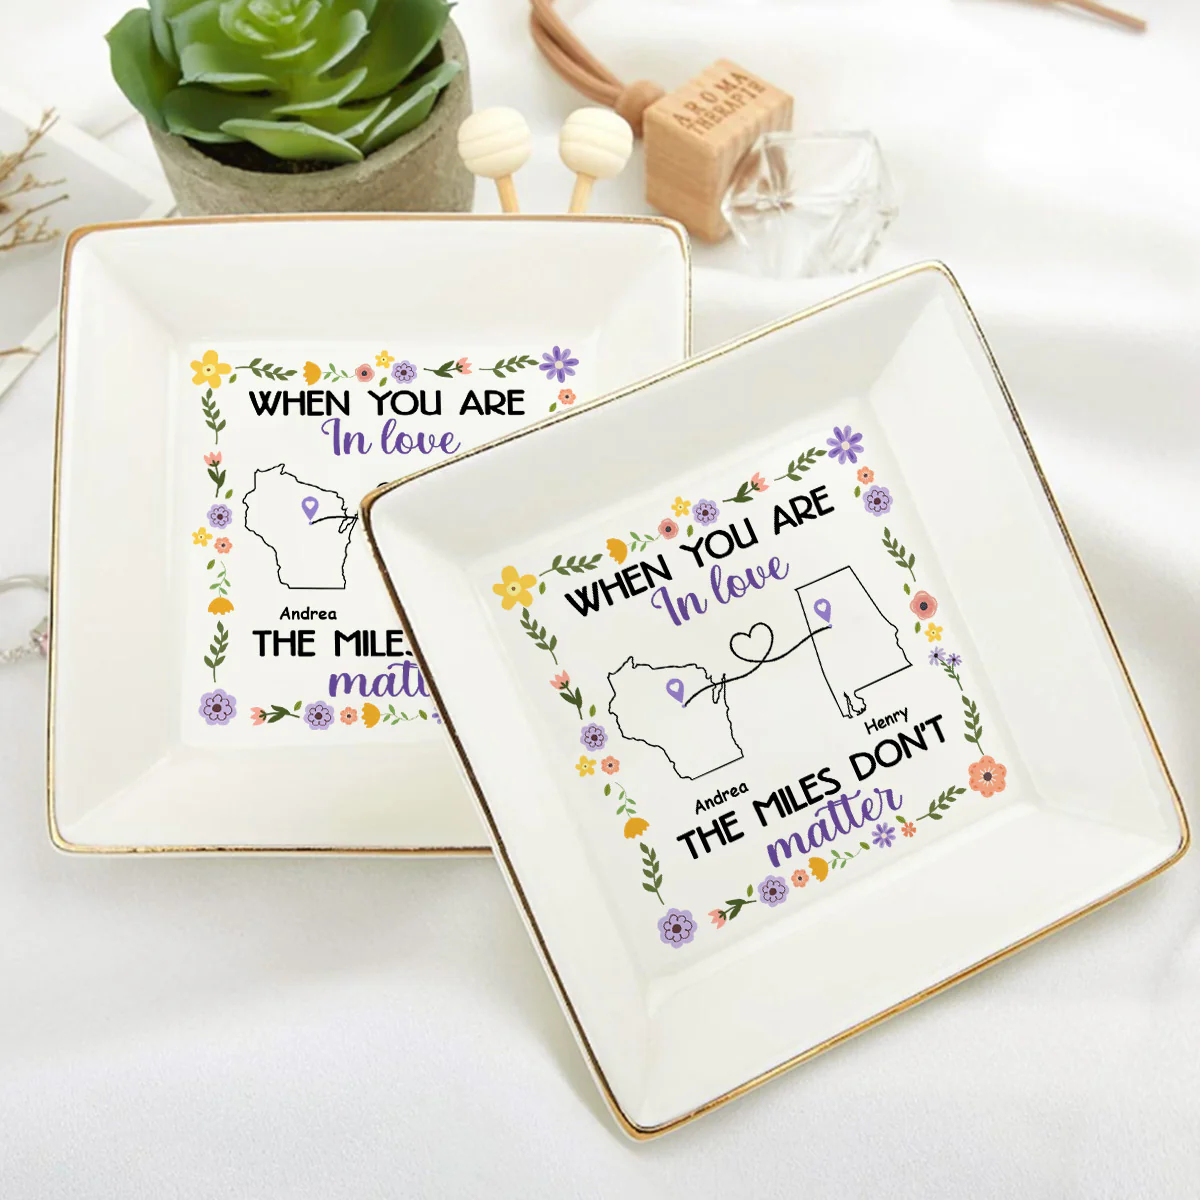 AROMA
THERAPIE
WHEN YOU ARE
In love
Andrea
THE MILES
WHEN YOU ARE
In love
Henry
Andrea
THE MILES DON'T
matter